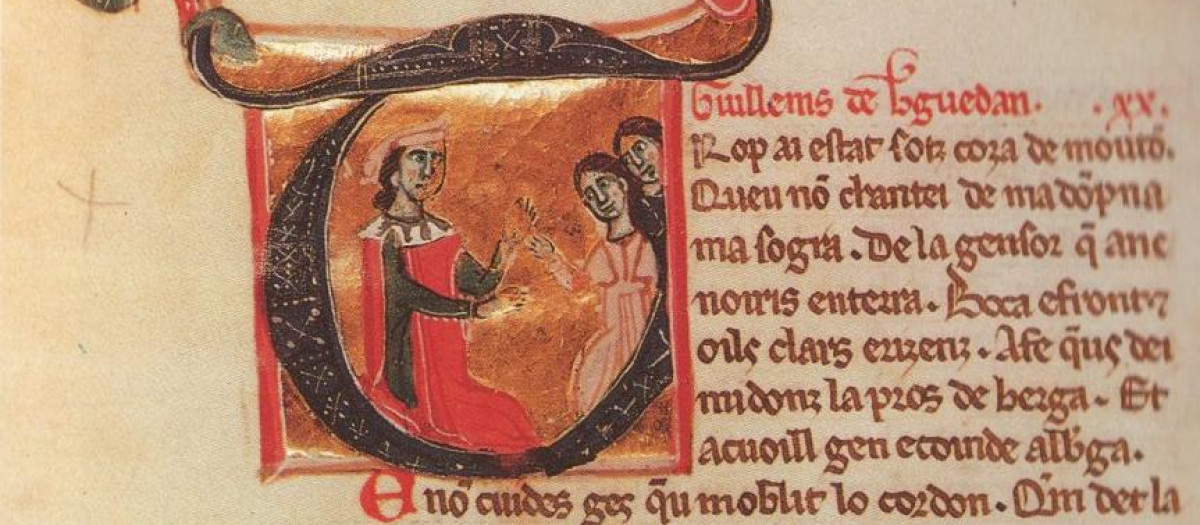 Guillems de bguedan. .xx.
Rop ai estat sotz coza de mouto.
Queu nõ chantei de ma dõpna
ma sogra. De la gensor q̃ anc
noiris enterra. Boca efrontz
oilz clars erizenz. Afe q̃us dei
midonz la pros de berga. Et
acuoill gen ecoinde alb̃ga.
E nõ cuides ges q̃u moblit lo cordon. Q̃m det la